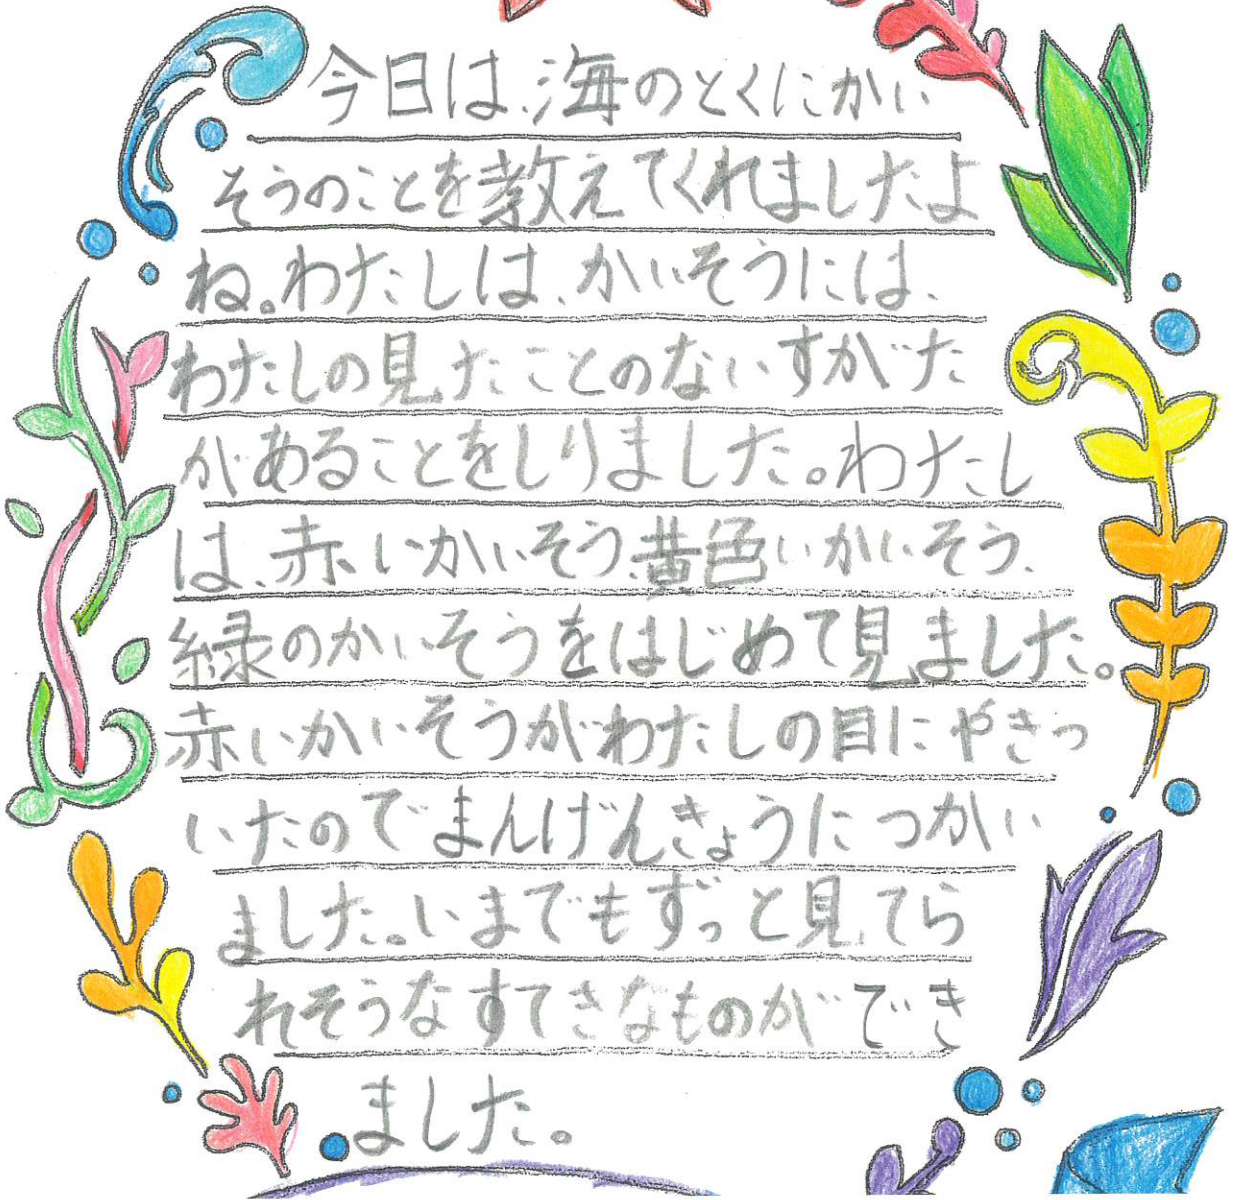 今日は、海のとくにかい
そうのことを教えてくれましたよ
ね。わたしは、かいそうには、
わたしの見たことのないすがた
があることをしりました。わたし
は、赤いかいそう、黄色いかいそう、
緑のかいそうをはじめて見ました。
赤いかいそうがわたしの目にやきつ
いたのでまんげんきょうにつかい
ました。いまでもずっと見てら
れそうなすてきなものができ
ました。